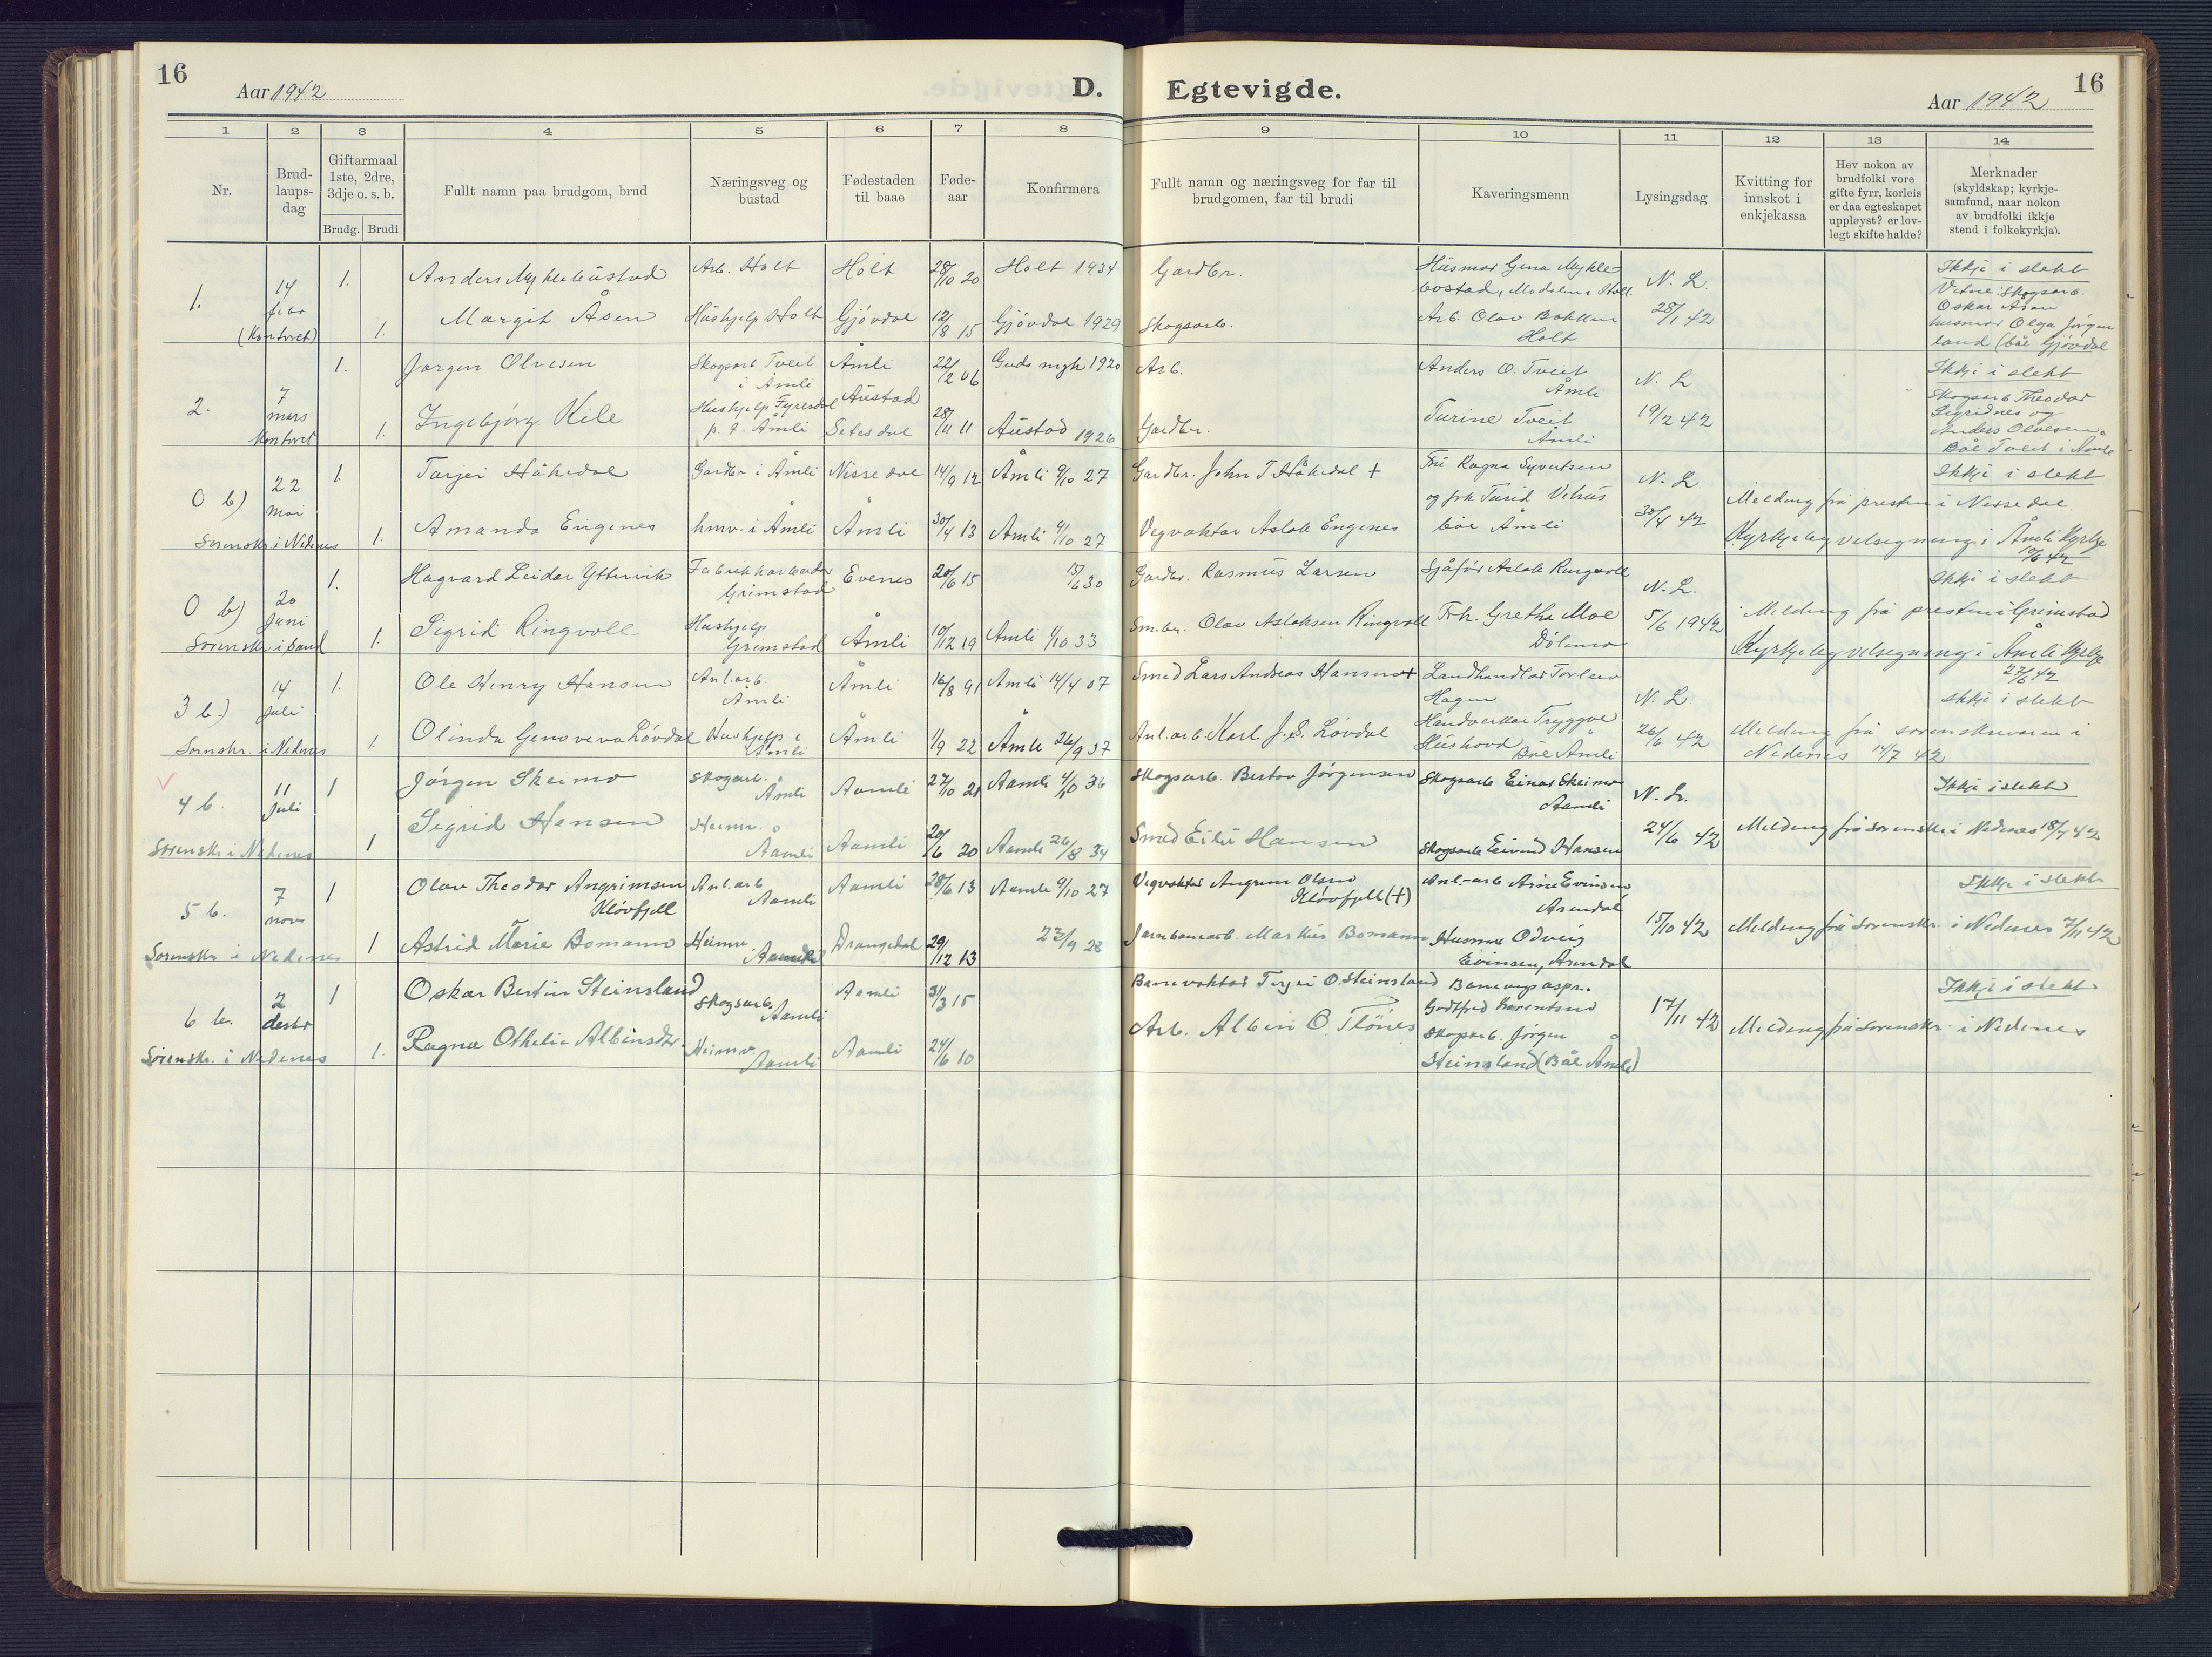 16
Aar 1942
D.
Egtevigde.
16
Aar 1942
1 2 3 4 5 6 7 8 9 10 11 12 13 14
Nr.
Brud-
laups-
dag
Giftarmaal
1ste, 2dre,
3dje o. s. b.
Brudg. Brudi
Fullt namn paa brudgom, brud
Næringsveg og
bustad
Fødestaden
til baae
Føde-
aar
Konfirmera
Fullt namn og næringsveg for far til
brudgomen, far til brudi
Kaveringsmenn
Lysingsdag
Kvitting for
innskot i
enkjekassa
Hev nokon av
brudfolki vore
gifte fyrr, korleis
er daa egteskapet
uppløyst? er lov-
legt skifte halde?
Merknader
(skyldskap; kyrkje-
samfund, naar nokon
av brudfolki ikkje
stend i folkekyrkja).
1.
14
febr
(Kontoret)
1. Anders Myklebustad Arb. Holt Holt 28/10 20 Holt 1934 Gardbr.
Husmor Gena Mykle-
bostad, Modalen, Holt.
N. L.
28/1 42
Ikkje i slekt
Vitne: Skogsarb.
Oskar Åsen
husmor Olga Jørgen
land (båe Gjövdal
1. Margit Åsen Hushjelp Holt Gjövdal 12/8 15 Gjövdal 1929 Skogsarb.
Arb. Olav Bakken
Holt
2.
7
mars
Kontoret
1. Jørgen Olvesen Skogsarb Tveit
i Åmli
Åmli 22/2 06 Guds mgh 1920 Arb.
Anders O. Tveit
Åmli
N. L
19/2 42
Ikkje i slekt
Skogsarb Theodor
Sigridnes og
Anders Olvesen.
Båe Tveit i Åmli
1. Ingebjørg Kile Hushjelp Fyresdal
p. t. Åmli
Austad
Setesdal
28/11 11 Austad 1926 Gardbr.
Turine Tveit
Åmli
0 b)
22
Mai
Sorenskr. i Nedenes
1. Tarjei Håkedal Gardbr i Åmli Nissedal 14/9 12 Åmli 9/10 27 Gardbr. John T. Håkedal +
Fru Ragna Syvertsen
og frk Turid Vehus
båe Åmli
N. L.
30/4 42
Ikkje i slekt
Melding frå presten i Nissedal
Kyrkjeleg velsegning i Åmli Kyrkje
10/6 42
1. Amanda Engenes hmv. i Åmli Åmli 30/4 13 Åmli 9/10 27 Vegvaktar Aslak Engenes
0 b)
20
Juni
Sorenskr. i Sand
1. Hagvard Leidar Yttervik Fabrikkarbeidar
Grimstad
Evenes 20/6 15 15/6 30 Gardbr. Rasmus Larsen
Sjåfør Aslak Ringvoll
N. L.
5/6 1942
Ikkje i slekt
Melding frå presten i Grimstad
Kyrkjeleg velsegning i Åmli Kyrkje
27/6 42
1. Sigrid Ringvoll Hushjelp
Grimstad
Åmli 10/12 19 Åmli 1/10 33 Sm.br. Olav Aslaksen Ringvoll
Frk. Gretha Moe
Dölemo
3 b.)
14
Juli
Sorenskr. i Nedenes
1. Ole Henry Hansen Anl.arb.
Åmli
Åmli 16/8 91 Åmli 14/4 07 Smed Lars Andreas Hansen +
Landhandlar Torleiv
Hagen
N. L.
26/6 42
Ikkje i slekt
Melding frå sorenskrivaren i
Nedenes 14/7 42
1. Olinda Genoveva Lövdal Hushjelp i
Åmli
Åmli 1/9 22 Åmli 26/9 37 Anl.arb Karl J. S. Lövdal
Handverkar Tryggve
Hushovd
Båe Åmli
4 b.
11
Juli
Sorenskr i Nedenes
1 Jörgen Skeimo Skogarb.
Åmli
Aamli 27/10 21 Aamli 4/10 36 Skogsarb. Bertov Jörgensen
Skogsarb Einar Skeimo
Aamli
N. L.
24/6 42
Ikkje i slekt
Melding frå sorenskr i Nedenes 18/7 42
1 Sigrid Hansen Heimv.
Åamli
Aamli 20/6 20 Aamli 26/8 34 Smed Eiliv Hansen
Skogsarb Eivind Hansen
5 b.
7
novr
Sorenskr i Nedenes
1 Olav Theodor Angrimsen
Klövfjell
Anl.arb
Aamli
Aamli 28/6 13 Aamli 9/10 27 Vegvaktar Angrim Olsen
Klövfjell (+)
Anl.-arb Arne Evinsen
Arendal
15/10 42
Ikkje i slekt
Melding frå Sorenskr. i Nedenes 7/11 42
1 Astrid Marie Bomann Heimv. Drangedal 29/12 13 23/9 28 Jarnbanearb. Markus Bomann
Husmor Odveig
Evinsen, Arendal
6 b.
2
desbr
Sorenskr. i Nedenes
1 Oskar Bertin Steinsland Skogsarb.
Aamli
Aamli 31/3 15 Banevaktar Terjei O. Steinsland
Banevegsaspr.
Godtfred Barentsen
17/11 42
Ikkje i slekt
Melding frå Sorenskr. i Nedenes
1. Ragna Othelie Albinsdtr. Heimv.
Aamli
Aamli 24/6 10 Arb. Albin O. Flönes
Skogsarb. Jörgen
Steinsland (Båe Åmli)